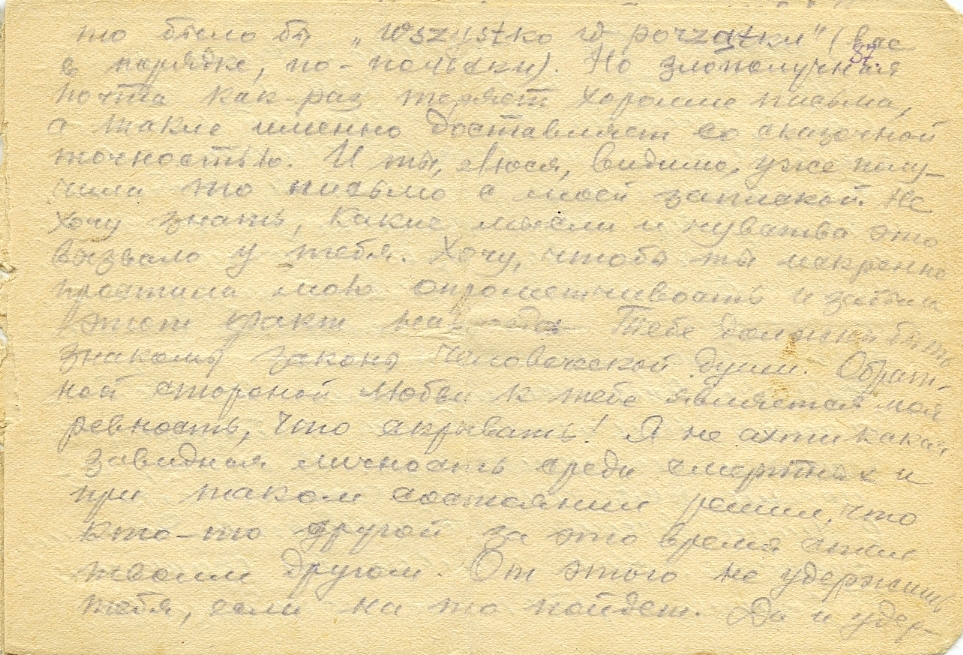 то было бы „Wszystko w porządku" (все
в порядке, по-польски). Но злополучная
почта как-раз теряет хорошие письма,
а такие именно доставляет со сказочной
точностью. И ты, Люся, видимо, уже полу-
чила то письмо с моей запиской. Не
хочу знать, какие мысли и чувства это
вызвало у тебя. Хочу, чтобы ты искренне
простила мою опрометчивость и забыла
этот факт навсегда. Тебе должны быть
знакомы законы человеческой души. Обрат-
ной стороной любви к тебе является моя
ревность, что скрывать! Я не ахти какая
завидная личность среди смертных и
при таком состоянии решил, что
кто-то другой за это время стал
твоим другом. От этого не удержишь
тебя, если на то пойдет. Да и удер-